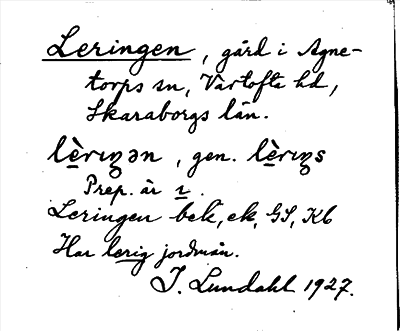 Leringen, gård i Agne-
torps sn, Vartofta hd,
Skaraborgs län.
lè̠rɪŋən, gen. lè̠rɪŋs
Prep. är ɪ.
Leringen bek, ek, GS, Kb
Har lerig jordmån.
I. Lundahl 1927.